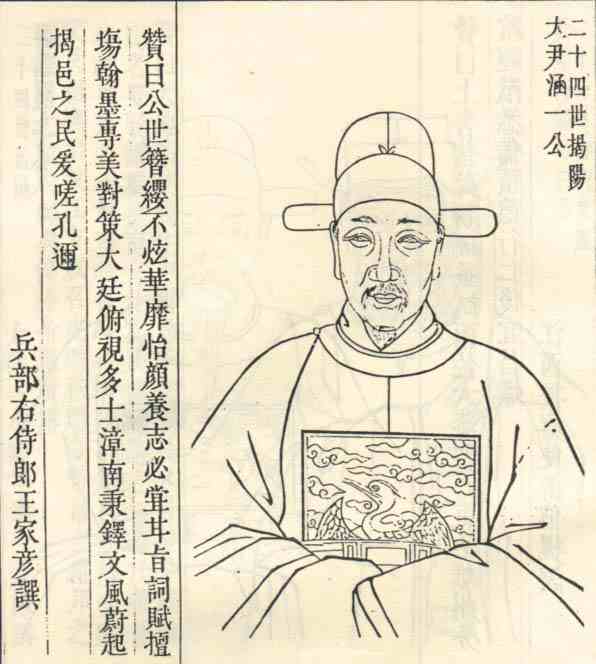 二十四世揭陽
大尹涵一公
贊曰公世簪纓不炫華靡怡顏養志必甞甘旨詞賦擅
塲翰墨專美對策大廷俯視多士漳南秉鐸文風蔚起
揭邑之民爰嗟孔邇
兵部右侍郎王家彥譔